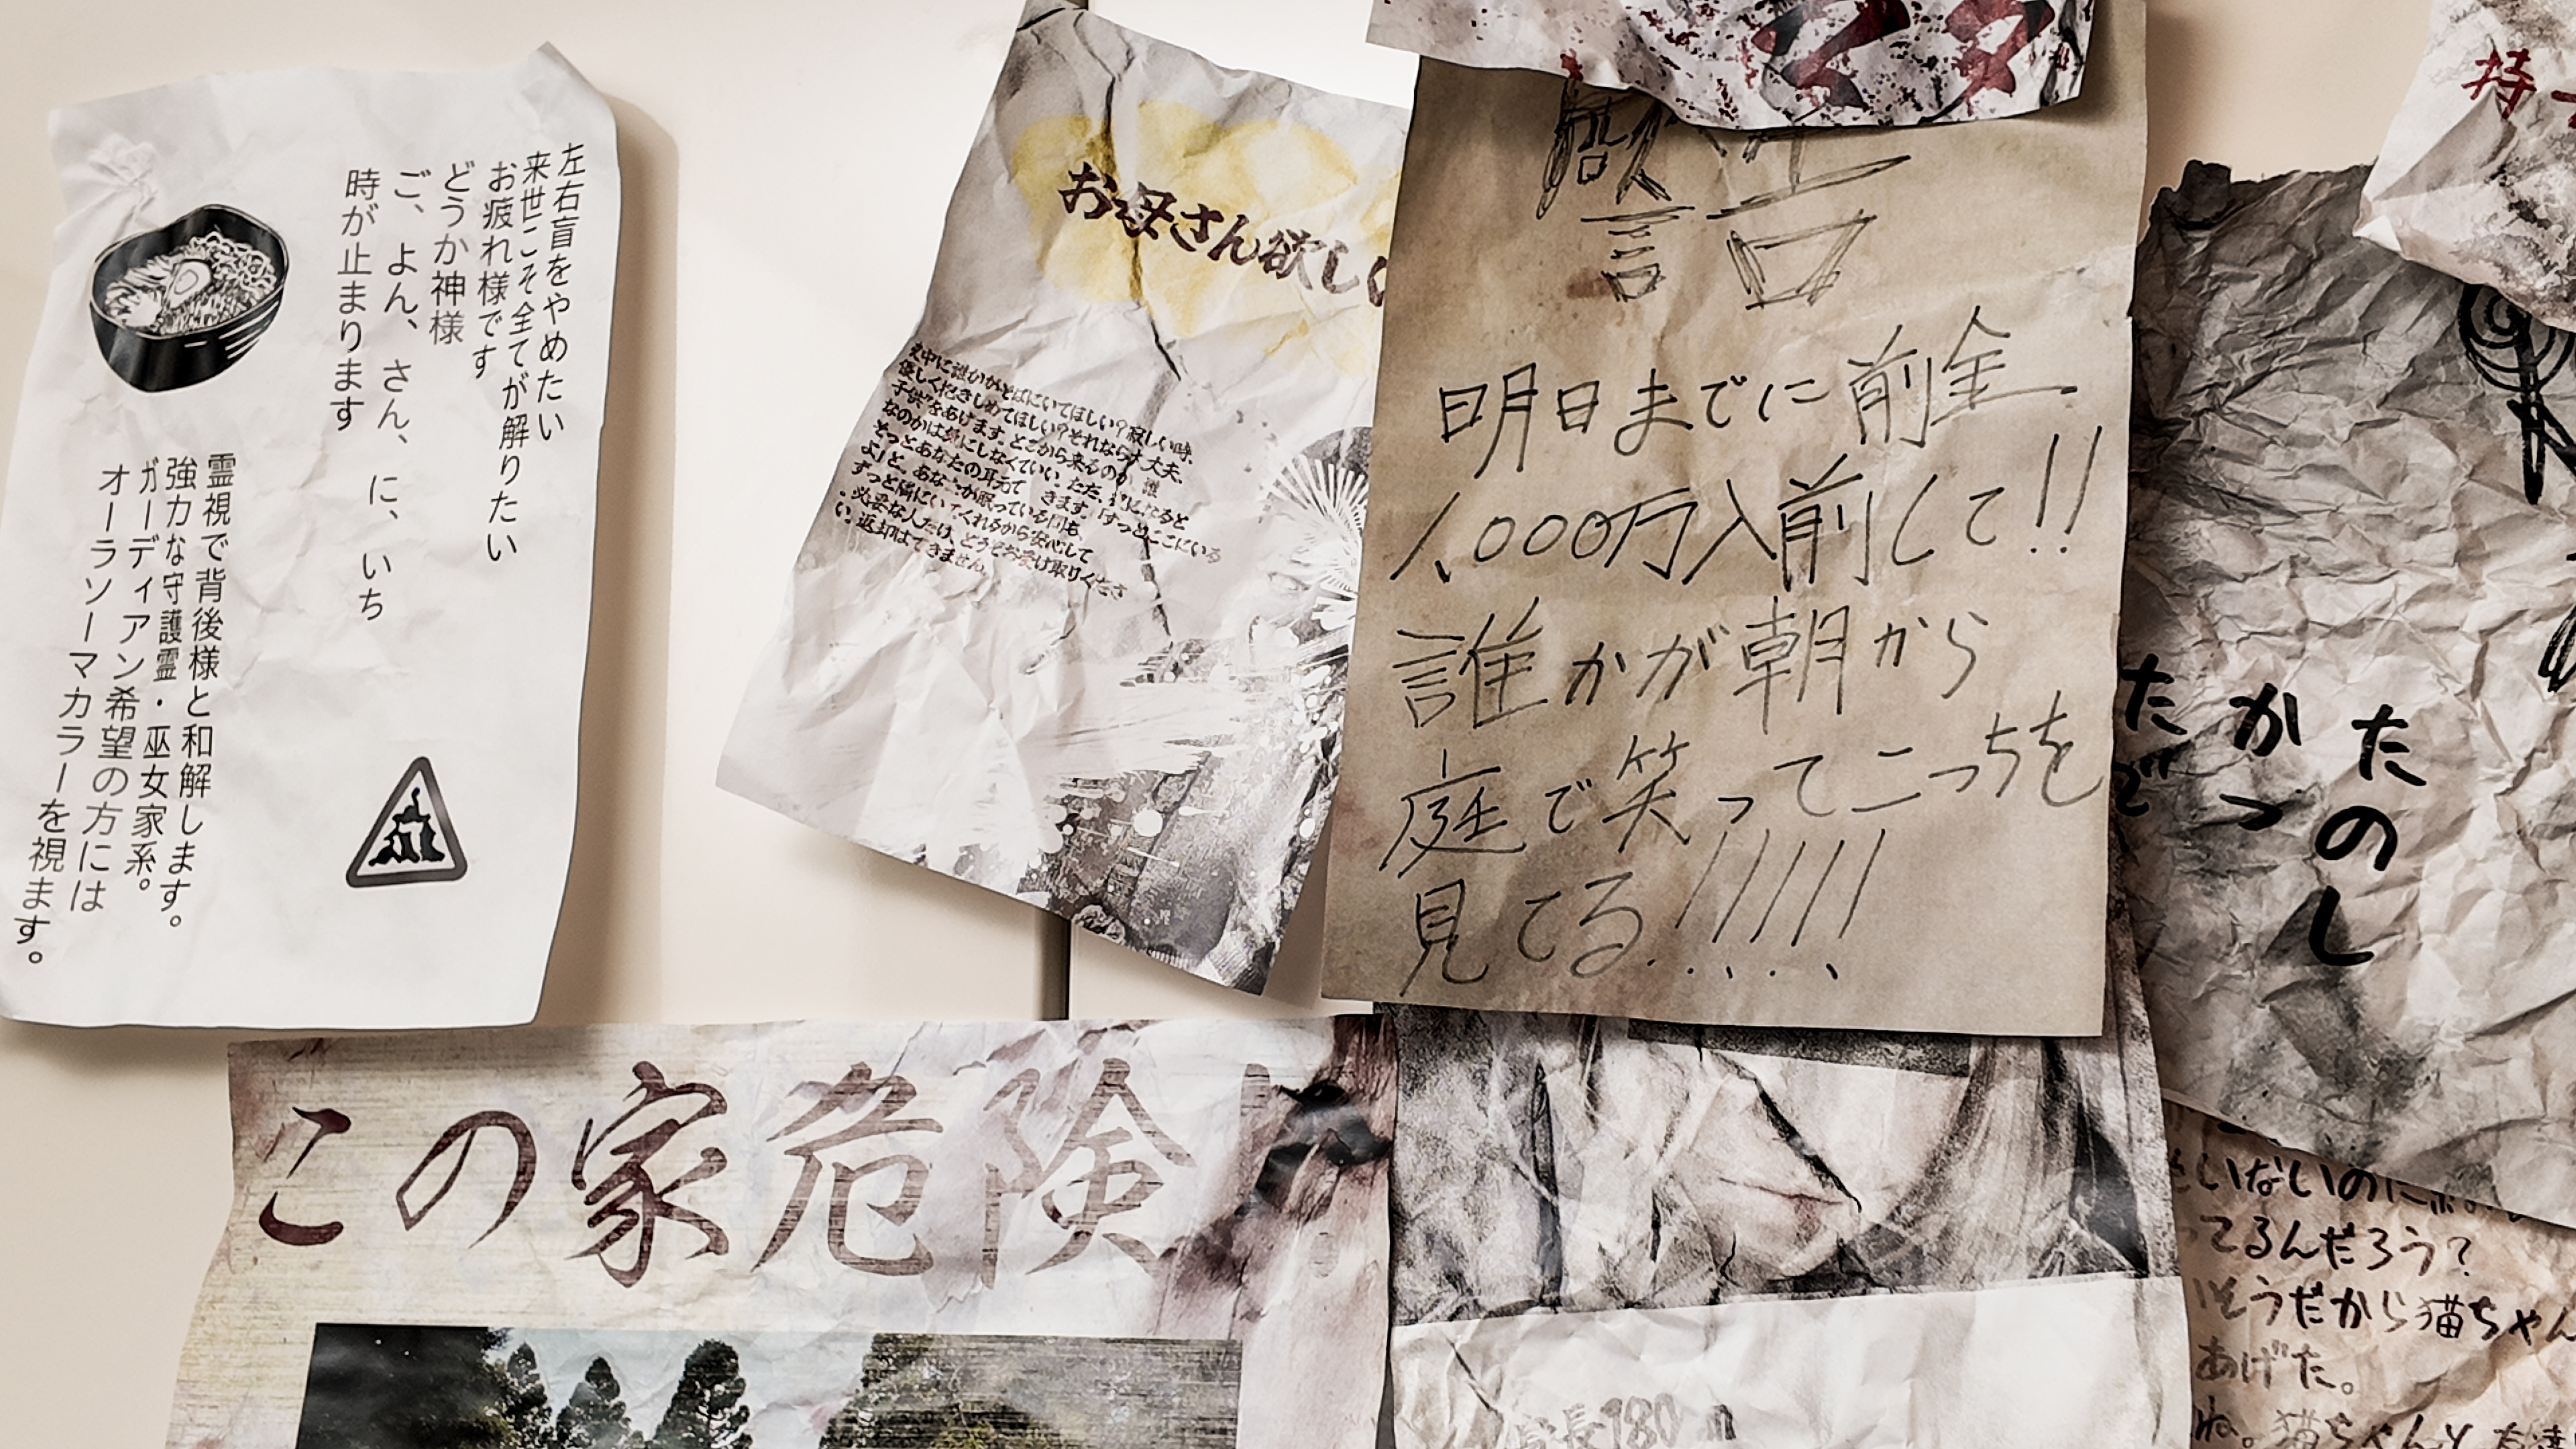 左右盲をやめたい
来世こそ全てが解りたい
お疲れ様です
どうか神様
ご、よん、さん、に、いち
時が止まります
霊視で背後様と和解します。
強力な守護霊・巫女家系。
ガーディアン希望の方には
オーラソーマカラーを視ます。
お母さん欲し
夜中に誰かがそばにいてほしい？寂しい時、
優しく抱きしめてほしい？それなら大丈夫。
子供をあげます。どこから来るのか 誰
なのかは気にしなくていい。ただ、
そっとあなたの耳元で きます。「ずっとここにいる
よ」と。あなたが眠っている間も、
ずっと隣にいてくれるから安心して
。必要な人だけ、どうぞお受け取りくださ
い。返却はできません。
警告
明日までに前全
1,000万入前して!!
誰かが朝から
庭で笑ってこっちを
見てる!!!!!
この家危険
身長180
持
たのし
かっ
た
で
いないのに
てるんだろう？
そうだから猫ちゃん
あげた。
ね。猫ちゃん